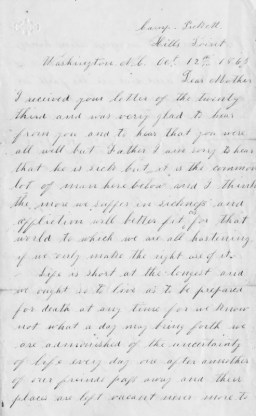 Camp Pickett
Hills Point
Washington N.C. Oct 12th 1863
Dear Mother
I received your letter of the twenty
third and was very glad to hear
from you and to hear that you were
all well but Father I am sorry to hear
that he is sick but it is the common
lot of man here below and I think
the more we suffer in sickness and
affliction will better fit for that
world to which we are all hastening
if we only make the right use of it.
Life is short at the longest and
we ought so to live as to be prepared
for death at any time for we know
not what a day may bring forth we
are admonished of the uncertainty
of life every day one after another
of our friends pass away and their
places are left vacant never more to